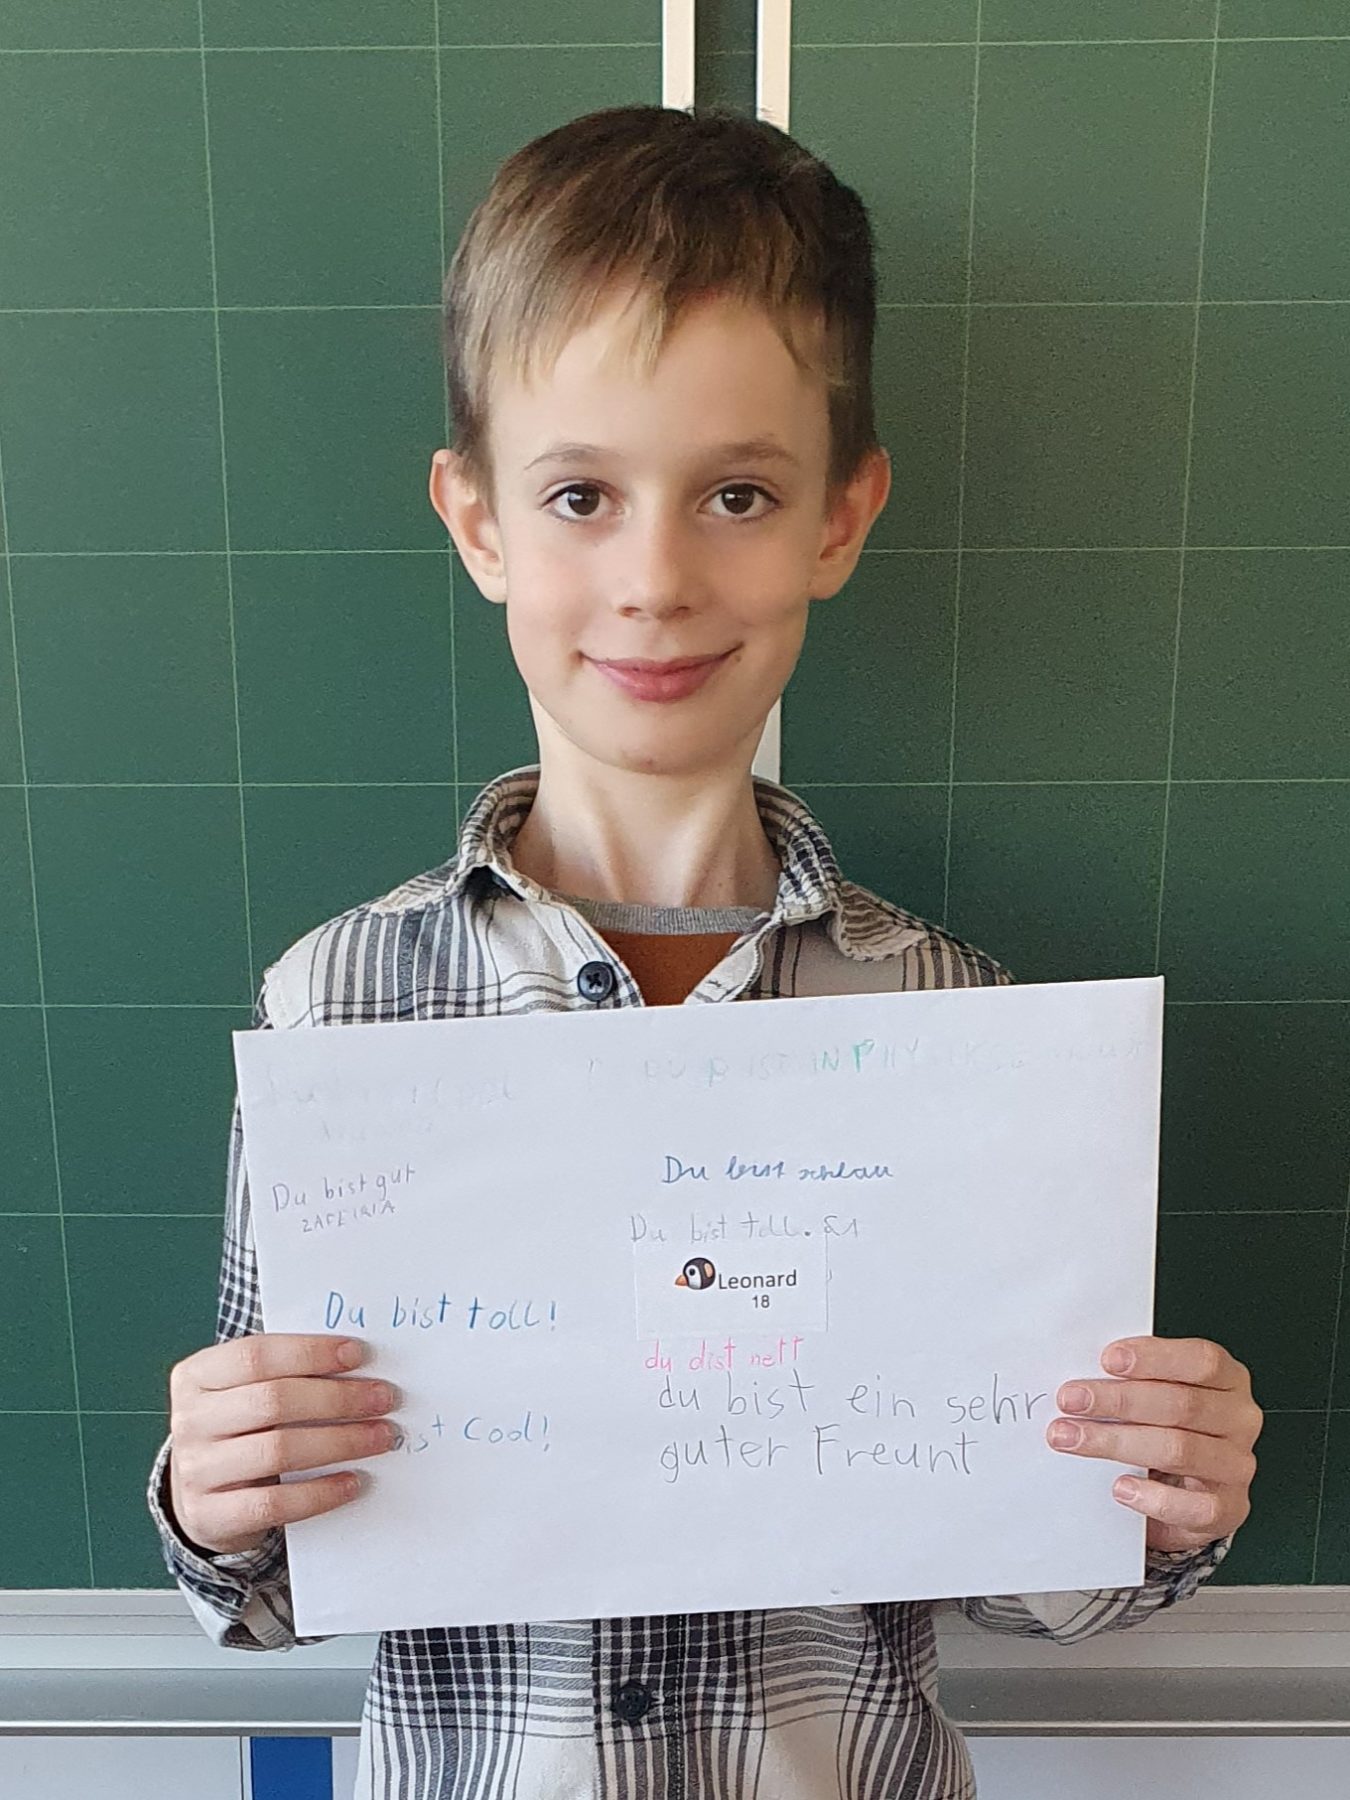 IN PHY
Du bist gut
ZAFEIRIA
Du bist schlau
Du bist toll.
Leonard
18
Du bist toll!
du dist nett
du bist ein sehr
guter Freunt
ist Cool!